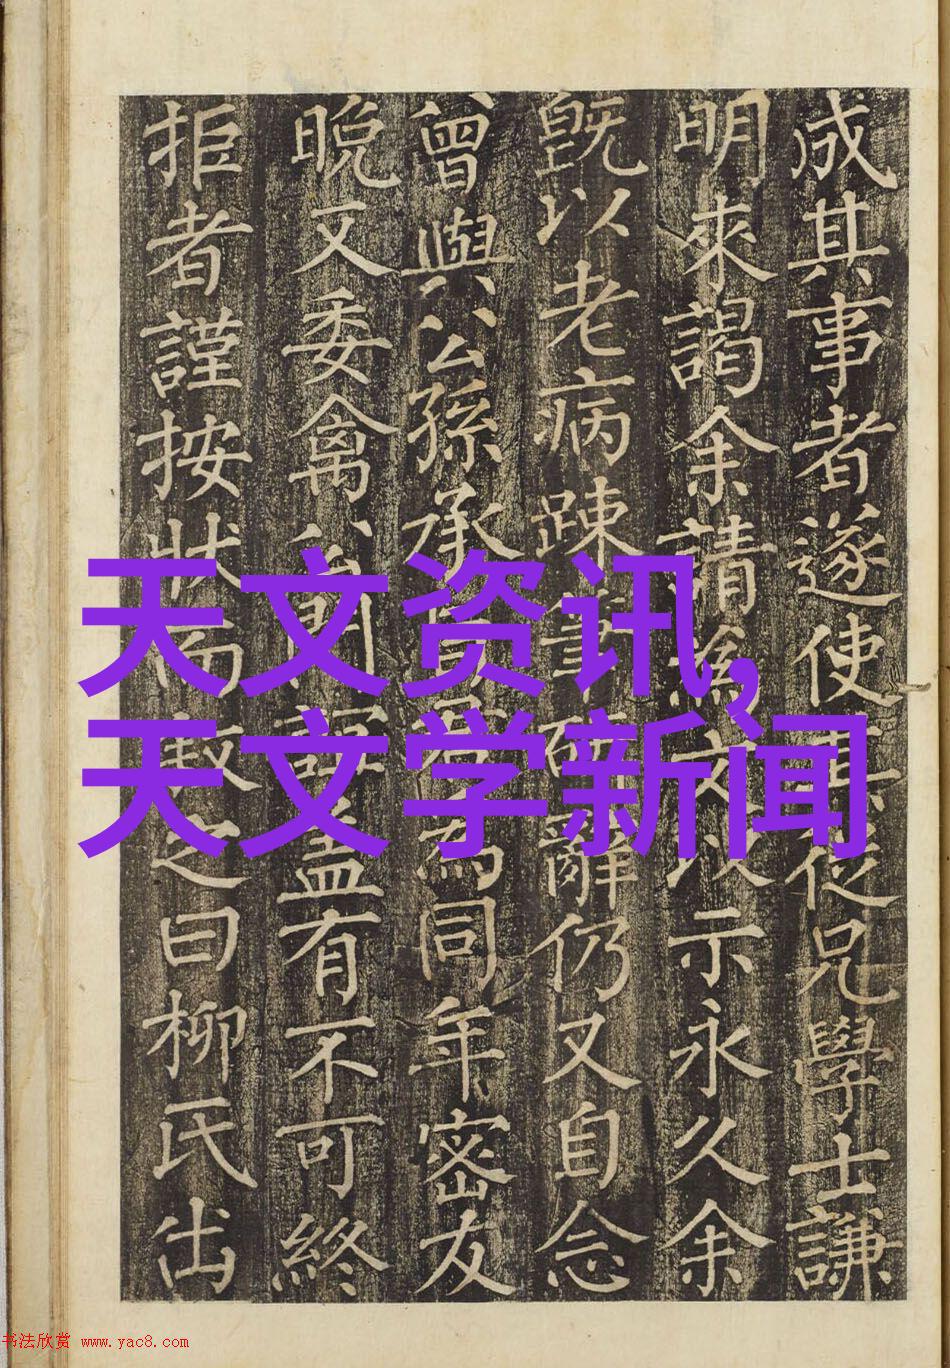 成其事者遂使其從兄學士謙
明來謁余請為文以示永久余
既以老病踈筆研辭仍又自念
曾與公孫承爲同年密友
晚又委禽門盖有不可終
拒者謹按狀而敘之曰柳氏出
天文资讯,
天文学新闻
书法欣赏 www.yac8.com